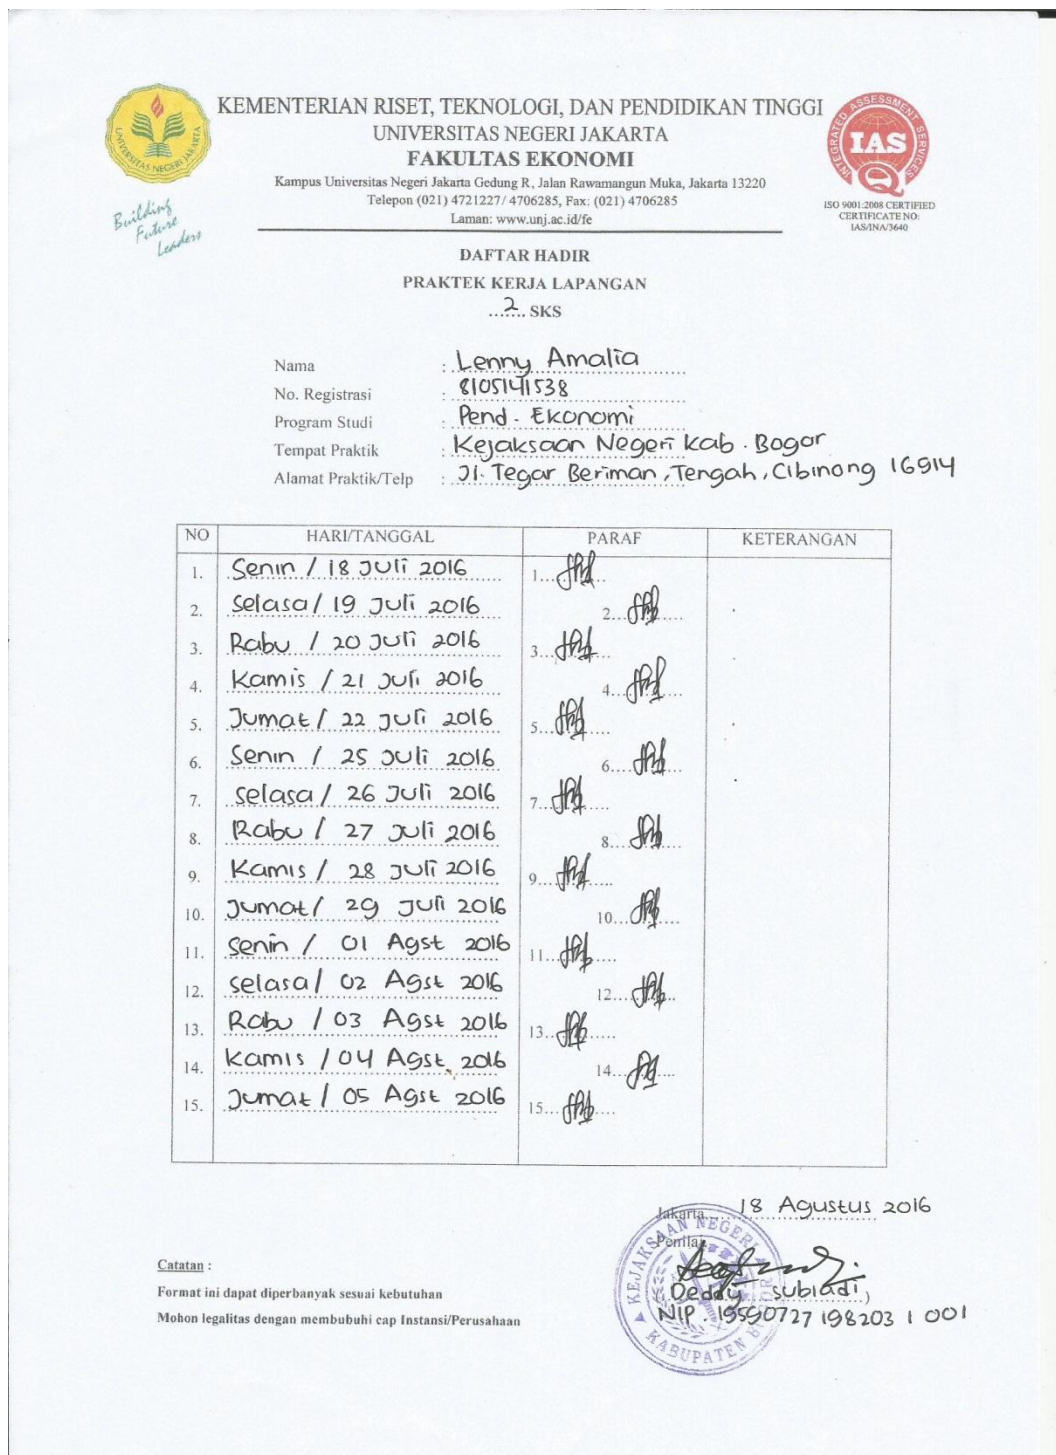 KEMENTERIAN RISET, TEKNOLOGI, DAN PENDIDIKAN TINGGI
UNIVERSITAS NEGERI JAKARTA
FAKULTAS EKONOMI
Kampus Universitas Negeri Jakarta Gedung R, Jalan Rawamangun Muka, Jakarta 13220
Telepon (021) 4721227/ 4706285, Fax: (021) 4706285
Laman: www.unj.ac.id/fe
UNIVERSITAS NEGERI JAKARTA
Building
Future
Leaders
INTEGRATED ASSESSMENT SERVICES
IAS
ISO 9001:2008 CERTIFIED
CERTIFICATE NO:
IAS/INA/3640
DAFTAR HADIR
PRAKTEK KERJA LAPANGAN
...2... SKS
Nama : Lenny Amalia
No. Registrasi : 8105141538
Program Studi : Pend. Ekonomi
Tempat Praktik : Kejaksaan Negeri Kab. Bogor
Alamat Praktik/Telp : Jl. Tegar Beriman, Tengah, Cibinong 16914
NO HARI/TANGGAL PARAF KETERANGAN
1. Senin / 18 Juli 2016 1.
2. Selasa / 19 Juli 2016 2.
3. Rabu / 20 Juli 2016 3.
4. Kamis / 21 Juli 2016 4.
5. Jumat / 22 Juli 2016 5.
6. Senin / 25 Juli 2016 6.
7. Selasa / 26 Juli 2016 7.
8. Rabu / 27 Juli 2016 8.
9. Kamis / 28 Juli 2016 9.
10. Jumat / 29 Juli 2016 10.
11. Senin / 01 Agst 2016 11.
12. Selasa / 02 Agst 2016 12.
13. Rabu / 03 Agst 2016 13.
14. Kamis / 04 Agst 2016 14.
15. Jumat / 05 Agst 2016 15.
Jakarta, 18 Agustus 2016
Penilai,
KEJAKSAAN NEGERI
KABUPATEN BOGOR
Deddy Subiadi)
NIP. 19590727 198203 1 001
Catatan :
Format ini dapat diperbanyak sesuai kebutuhan
Mohon legalitas dengan membubuhi cap Instansi/Perusahaan